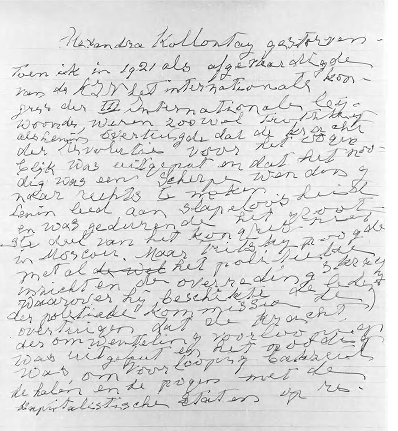 Alexandra Kollontay gestorven.
Toen ik in 1921 als afgevaardigde
van de K.P.N. het internationale kon-
gres der III Internationale bij-
woonde, waren zoowel Trotsky
als Lenin overtuigd dat de kracht
der Revolutie voor het oogen-
blik was uitgeput en dat het noo-
dig was een scherpe wending
naar rechts te maken.
Lenin leed aan slapeloosheid
en was gedurende het groot-
ste deel van het kongres niet
in Moscou. Maar Tritsky poogde
met al het politieke
inzicht en de overreding
waarover hij beschikte de leden
der politieke kommissie te
overtuigen dat de kracht
der omwenteling voorloopig
was uitgeput en het noodig
was om voorloopig bakzeil
te halen en te pogen met de
kapitalistische staten op re-